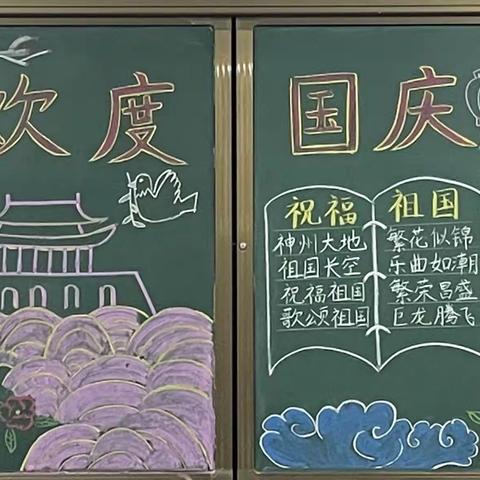 欢度国庆
祝福祖国
神州大地
祖国长空
祝福祖国
歌颂祖国
繁花似锦
乐曲如潮
繁荣昌盛
巨龙腾飞